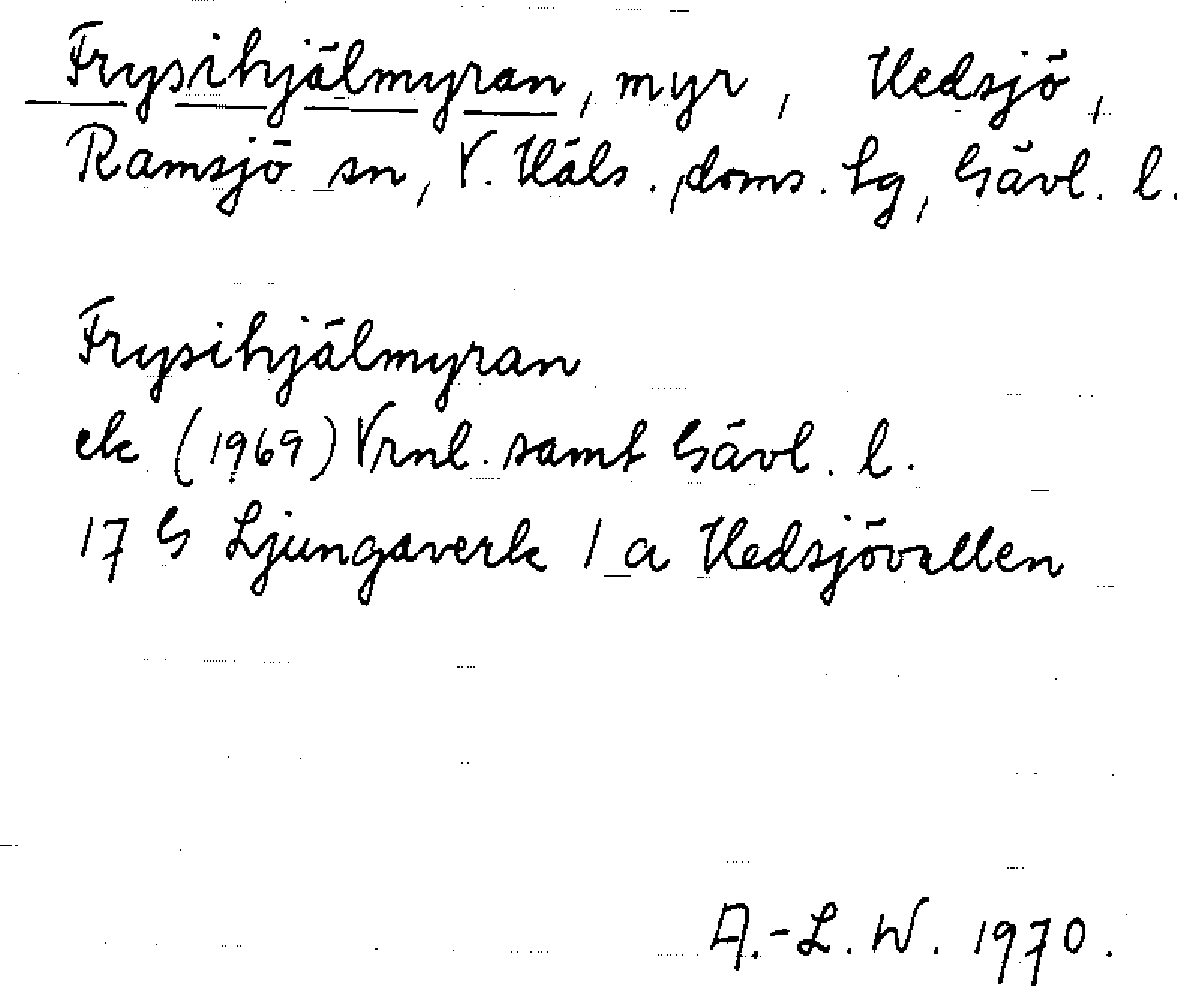 Frysihjälmyran, myr, Hedsjö,
Ramsjö sn, V. Häls. doms. lg, Gävl. l.
Frysihjälmyran
ek (1969) Vrnl. samt Gävl. l.
17 G Ljungaverk 1 a Hedsjövallen
A.-L. W. 1970.